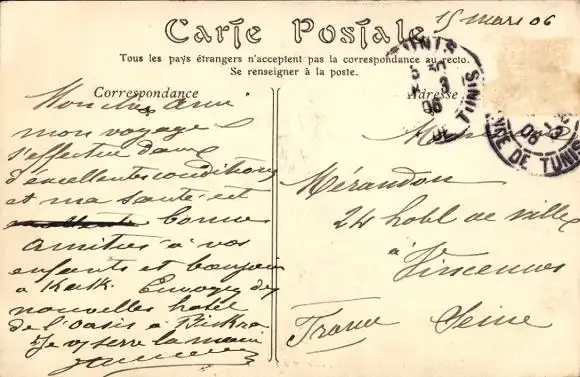 Carte Postale
15 mars 06
Tous les pays étrangers n'acceptent pas la correspondance au recto.
Se renseigner à la poste.
Correspondance
Adresse
Mon cher ami
mon voyage
s'effectue dans
d'excellentes conditions
et ma santé est
bonne
amitiés à vos
enfants et bonjour
à Envoyez des
nouvelles hotel
de l'Oasis à Biskra
Je vs serre la main
Monsieur
Mérandon
24 hotel de ville
à
Vincennes
France Seine
TUNIS
3
06
DE TUNIS
06
DE TUNIS